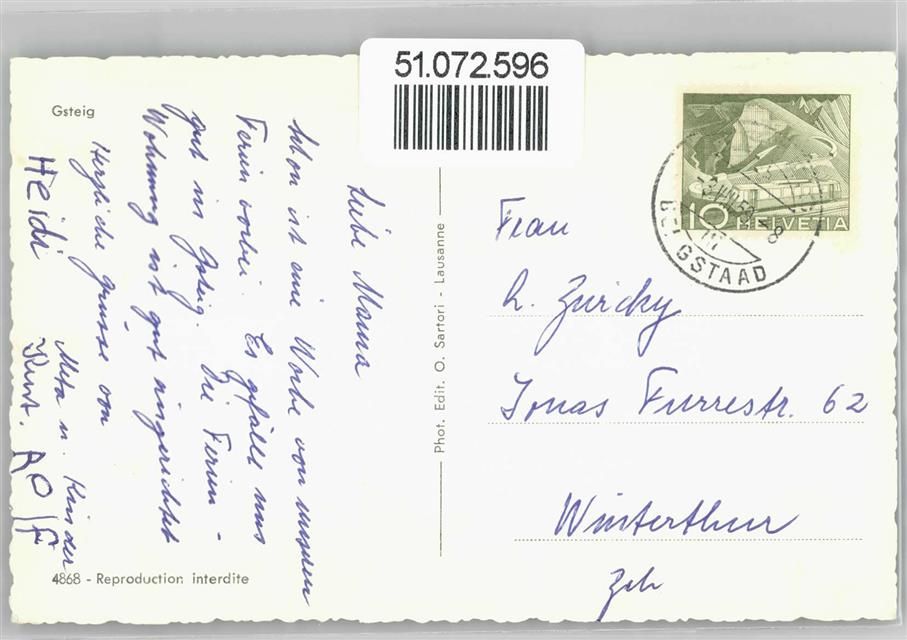 51.072.596
Gsteig
Liebe Mama
Schon ist eine Woche von unseren
Ferien vorbei. Es gefällt uns
gut in Gsteig. Die Ferien-
Wohnung ist gut eingerichtet
Herzliche Grüsse von
Meta u. Kinder
Kurt.
HEidi
4868 - Reproduction interdite
Phot. Edit. O. Sartori - Lausanne
10 HELVETIA
GSTAAD
Frau
L. Zwicky
Jonas Furrestr. 62
Winterthur
Zch